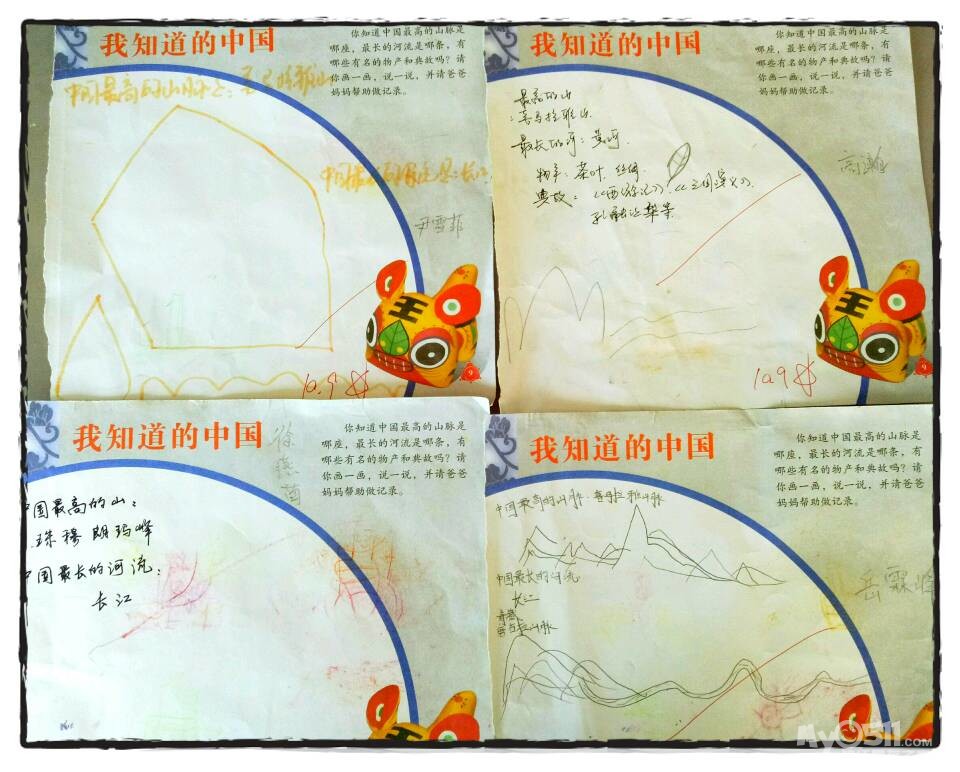 我知道的中国
你知道中国最高的山脉是
哪座，最长的河流是哪条，有
哪些有名的物产和典故吗？请
你画一画，说一说，并请爸爸
妈妈帮助做记录。
中国最高的山脉是：喜马拉雅山
中国最长的河流是：长江
尹雪菲
王
10.9
9
我知道的中国
你知道中国最高的山脉是
哪座，最长的河流是哪条，有
哪些有名的物产和典故吗？请
你画一画，说一说，并请爸爸
妈妈帮助做记录。
最高的山
：喜马拉雅山
最长的河：黄河
物产：茶叶、丝绸
典故：《西游记》《三国演义》
孔融让梨等
高
王
10.9
9
我知道的中国
你知道中国最高的山脉是
哪座，最长的河流是哪条，有
哪些有名的物产和典故吗？请
你画一画，说一说，并请爸爸
妈妈帮助做记录。
徐
国最高的山：
珠穆朗玛峰
中国最长的河流：
长江
我知道的中国
你知道中国最高的山脉是
哪座，最长的河流是哪条，有
哪些有名的物产和典故吗？请
你画一画，说一说，并请爸爸
妈妈帮助做记录。
中国最高的山脉：喜马拉雅山脉
中国最长的河流
长江
山脉
岳霖峰
Ay0511.COM